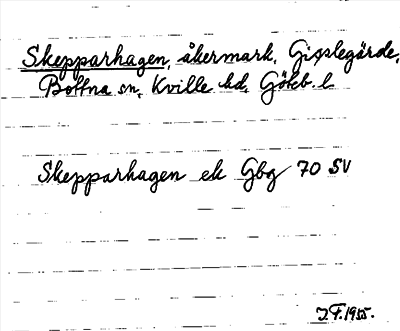 Skepparhagen, åkermark, Gisslegärde,
Bottna sn, Kville hd, Göteb. l.
Skepparhagen ek Gbg 70 SV
J.F. 1955.